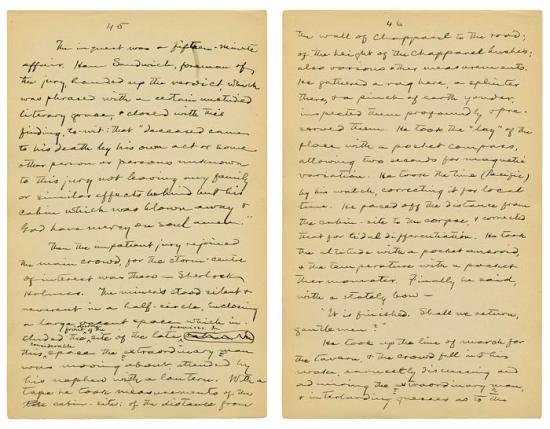 45
The inquest was a fifteen-minute
affair. Ham Sandwich, foreman of
the jury, handed up the verdict, which
was phrased with a certain unstudied
literary grace, & closed with this
finding, to wit: that "deceased came
to his death by his own act or some
other person or persons unknown
to this jury not leaving any family
or similar effects behind but his
cabin which was blown away &
God have mercy on soul amen."
Then the impatient jury rejoined
the main crowd, for the storm-centre
of interest was there — Sherlock
Holmes. The miners stood silent &
reverent in a half-circle, enclosing
a large vacant space which in-
front of the premises. In
cluded the site of the late
considerable
this space the extraordinary man
was moving about, attended by
his nephew with a lantern. With a
tape he took measurements of the
cabin-site; of the distance from
46
the wall of chapparal to the road;
of the height of the chapparal bushes;
also various other measurements.
He gathered a rag here, a splinter
there, & a pinch of earth yonder,
inspected them profoundly & pre-
served them. He took the "lay" of the
place with a pocket compass,
allowing two seconds for magnetic
variation. He took the time (Pacific)
by his watch, correcting it for local
time. He paced off the distance from
the cabin-site to the corpse, & corrected
that for tidal differentiation. He took
the altitude with a pocket aneroid,
& the temperature with a pocket
thermometer. Finally he said,
with a stately bow —
"It is finished. Shall we return,
gentlemen?"
He took up the line of march for
the tavern, & the crowd fell into his
wake, earnestly discussing and
admiring the extraordinary man,
& interlarding guesses as to the